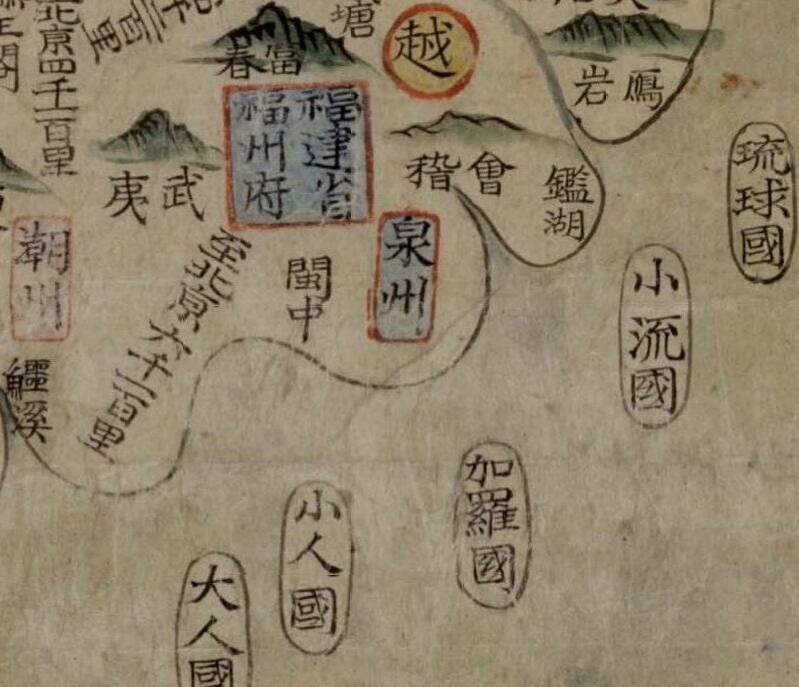 琉球國
鴈岩
小流國
鑑湖
會稽
越
加羅國
塘
泉州
福建省
福州府
富春
閩中
小人國
武夷
至北京六千一百里
大人國
百里
北京四千一百里
潮州
鱷溪
王閣